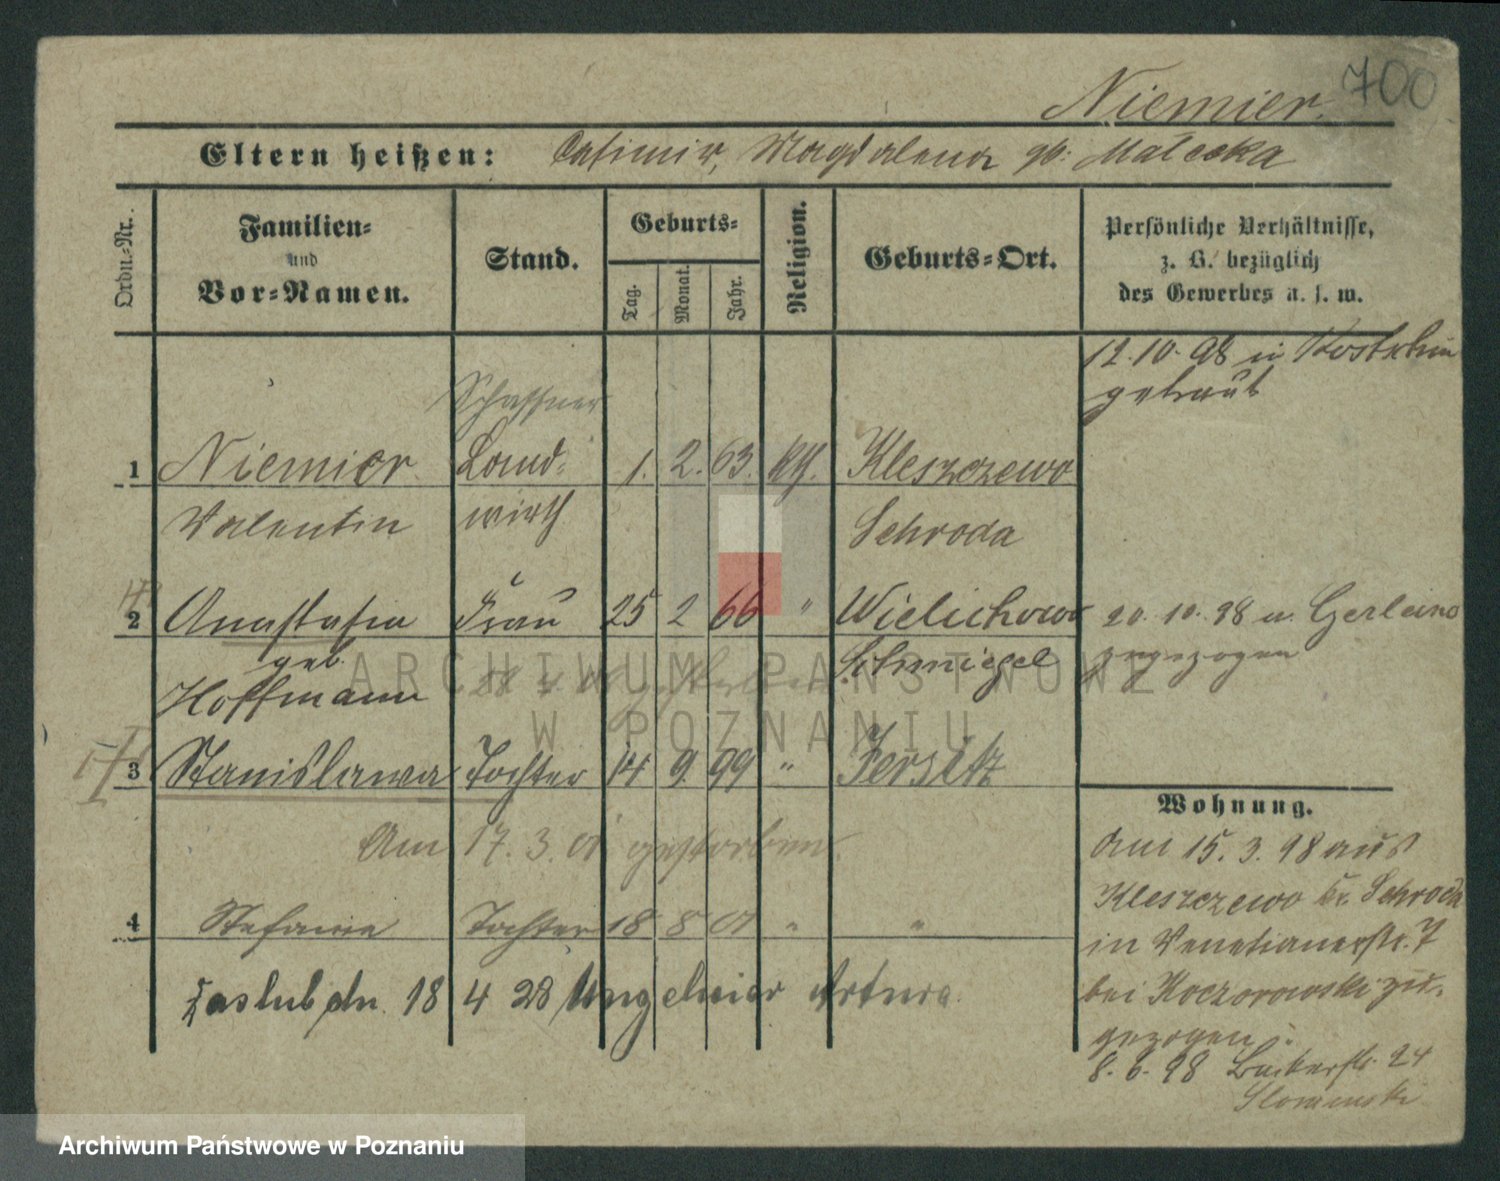 700
Niemier.
Eltern heißen: Casimir, Magdalena gb. Małecka
Ordn.-Nr.
Familien-
und
Vor-Namen.
Stand.
Geburts-
Tag.
Monat.
Jahr.
Religion.
Geburts-Ort.
Persönliche Verhältnisse,
z. B. bezüglich
des Gewerbes u. s. w.
12.10.98 in Kostschin
getraut
Schaffner
1 Niemier Land- 1. 2. 63. kth. Kleszczewo
Valentin wirth Schroda
2 Anastasia Frau 25 2 66 " Wielichowo
geb.
Hoffmann Schmiegel
20.10.98 v. Gerlein
zugezogen
3 Stanislawa Tochter 14 9. 99 " Jersitz
Am 17.3.01 gestorben.
4 Stefanie Tochter 18 8 01 " "
zaślub. dn. 18 4 28 Artura
Wohnung.
Am 15.3.98 aus
Kleszczewo Kr. Schroda
in Venetianerstr. 7
bei Koczorowski zu-
gezogen.
8.6.98 Bäckerstr. 24
Slominski
ARCHIWUM PAŃSTWOWE
W POZNANIU
Archiwum Państwowe w Poznaniu